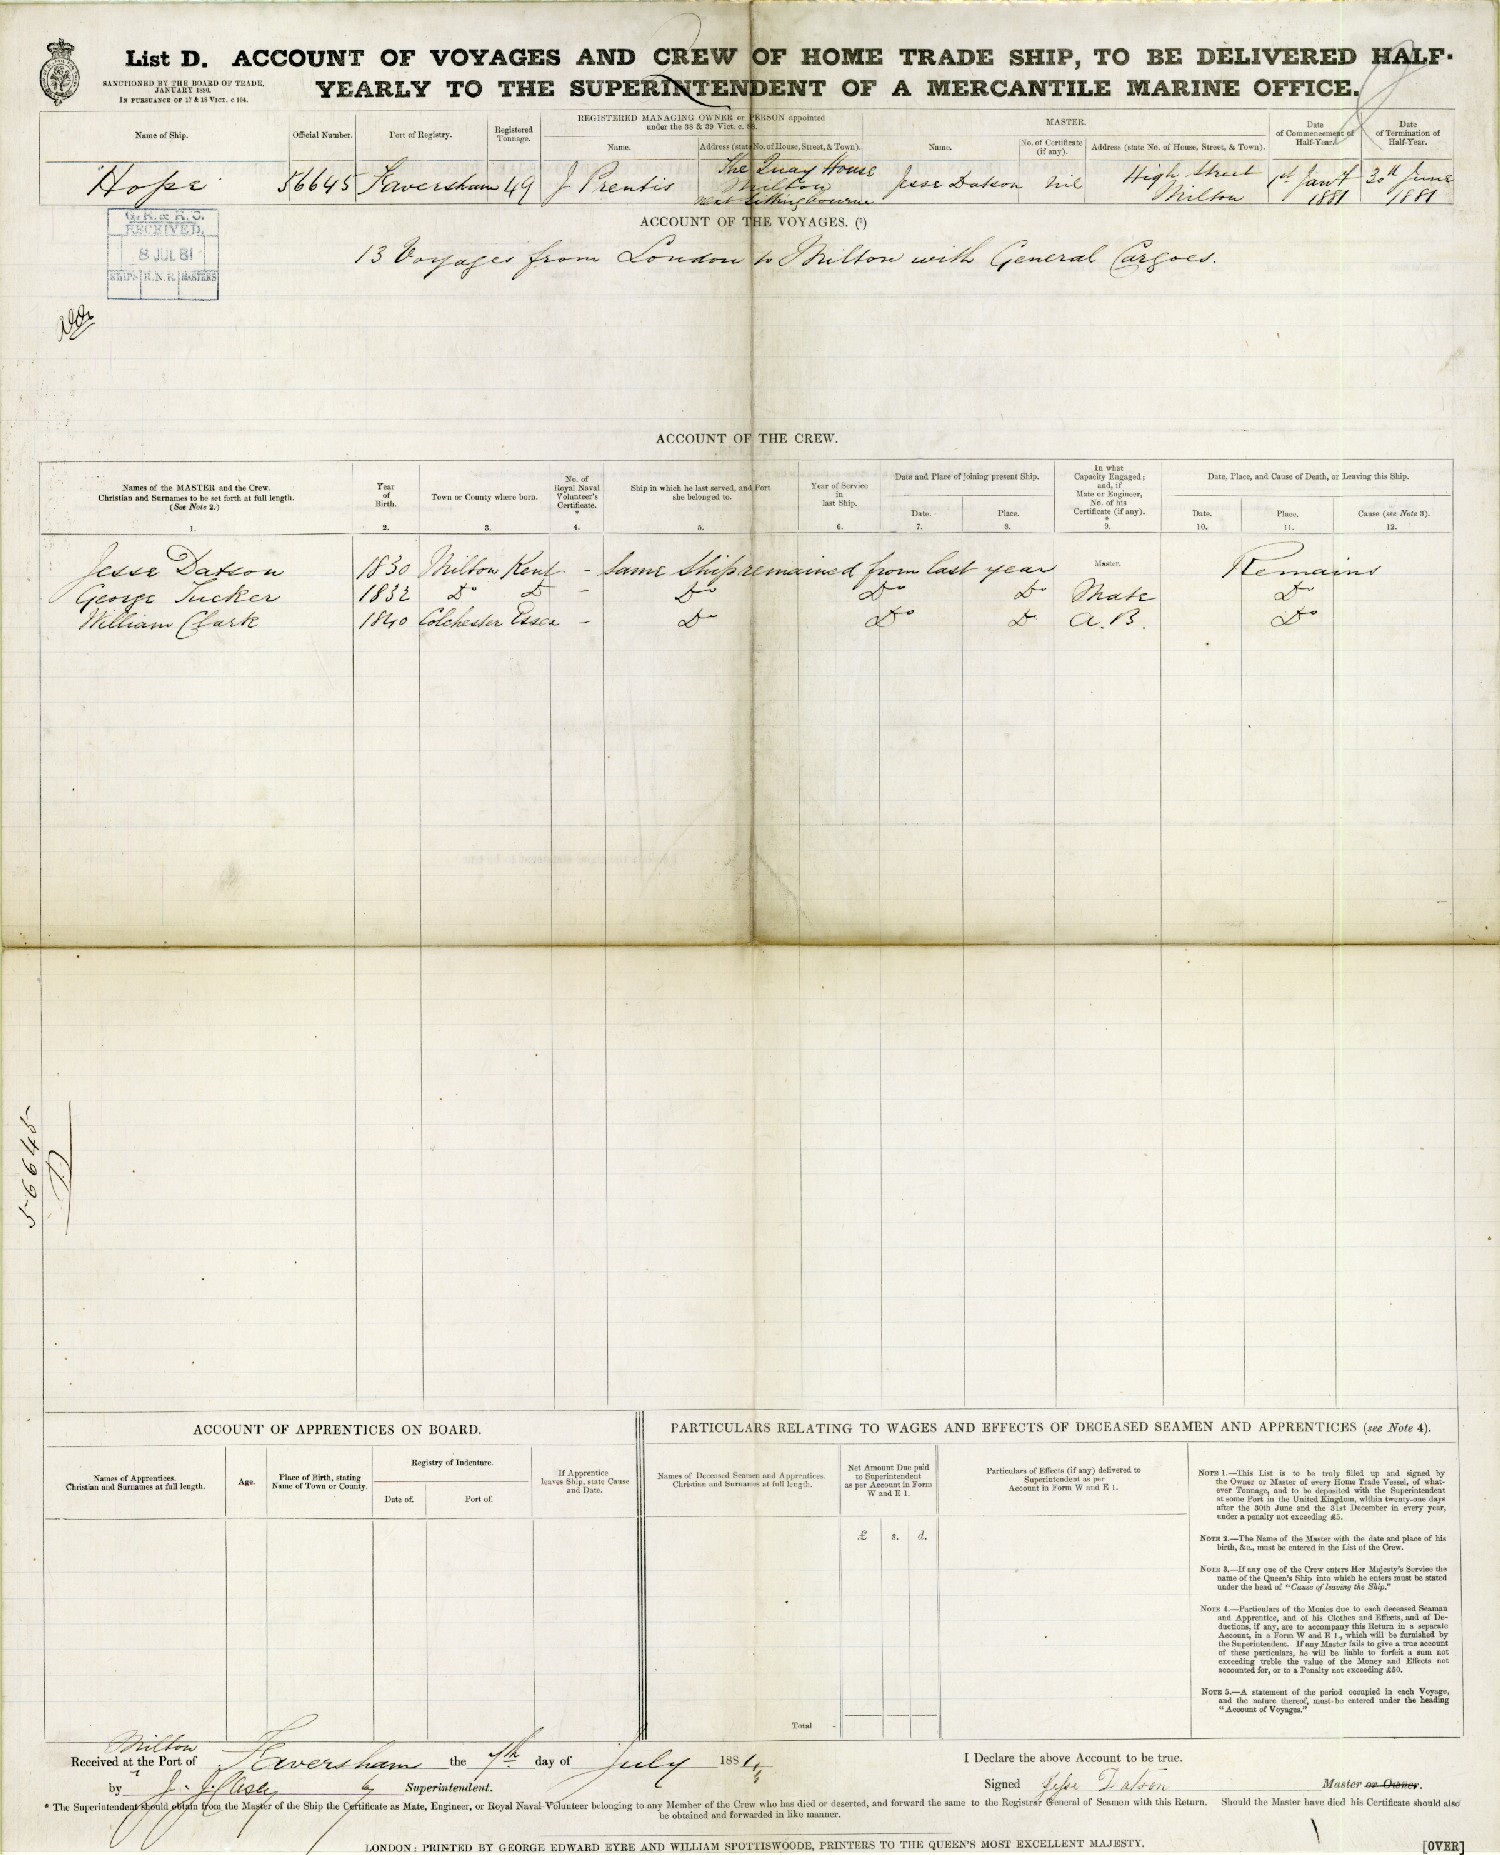 List D. ACCOUNT OF VOYAGES AND CREW OF HOME TRADE SHIP, TO BE DELIVERED HALF-
YEARLY TO THE SUPERINTENDENT OF A MERCANTILE MARINE OFFICE.
SANCTIONED BY THE BOARD OF TRADE,
JANUARY 1880.
IN PURSUANCE OF 17 & 18 VICT. c 104.
Name of Ship.
Official Number.
Port of Registry.
Registered
Tonnage.
REGISTERED MANAGING OWNER or PERSON appointed
under the 38 & 39 Vict. c. 88.
Name.
Address (state No. of House, Street, & Town).
MASTER.
Name.
No. of Certificate
(if any).
Address (state No. of House, Street, & Town).
Date
of Commencement of
Half-Year.
Date
of Termination of
Half-Year.
Hope
56645
Faversham
49
J Prentis
The Quay House
Milton
near Sittingbourne
Jesse Datson
Nil
High Street
Milton
1st Jany
1881
30th June
1881
G.R. & R.S.
RECEIVED,
8 JUL 81
SHIPS R.N.R. MASTERS
ACCOUNT OF THE VOYAGES. (5)
13 Voyages from London to Milton with General Cargoes.
ACCOUNT OF THE CREW.
Names of the MASTER and the Crew.
Christian and Surnames to be set forth at full length.
(See Note 2.)
1.
Year
of
Birth.
2.
Town or County where born.
3.
No. of
Royal Naval
Volunteer's
Certificate.
*
4.
Ship in which he last served, and Port
she belonged to.
5.
Year of Service
in
last Ship.
6.
Date and Place of joining present Ship.
Date.
7.
Place.
8.
In what
Capacity Engaged;
and, if
Mate or Engineer,
No. of his
Certificate (if any).
*
9.
Date, Place, and Cause of Death, or Leaving this Ship.
Date.
10.
Place.
11.
Cause (see Note 3).
12.
Jesse Datson 1830 Milton Kent - Same Ship remained from last year Master. Remains
George Tucker 1832 Do Do - Do Do Do Mate Do
William Clark 1840 Colchester Essex - Do Do Do A.B. Do
56645
D
ACCOUNT OF APPRENTICES ON BOARD.
Names of Apprentices.
Christian and Surnames at full length.
Age.
Place of Birth, stating
Name of Town or County.
Registry of Indenture.
Date of.
Port of.
If Apprentice
leaves Ship, state Cause
and Date.
PARTICULARS RELATING TO WAGES AND EFFECTS OF DECEASED SEAMEN AND APPRENTICES (see Note 4).
Names of Deceased Seamen and Apprentices.
Christian and Surnames at full length.
Net Amount Due paid
to Superintendent
as per Account in Form
W and E 1.
£ s. d.
Particulars of Effects (if any) delivered to
Superintendent as per
Account in Form W and E 1.
Total -
NOTE 1.—This List is to be truly filled up and signed by
the Owner or Master of every Home Trade Vessel, of what-
ever Tonnage, and to be deposited with the Superintendent
at some Port in the United Kingdom, within twenty-one days
after the 30th June and the 31st December in every year,
under a penalty not exceeding £5.
NOTE 2.—The Name of the Master with the date and place of his
birth, &c., must be entered in the List of the Crew.
NOTE 3.—If any one of the Crew enters Her Majesty's Service the
name of the Queen's Ship into which he enters must be stated
under the head of "Cause of leaving the Ship."
NOTE 4.—Particulars of the Monies due to each deceased Seaman
and Apprentice, and of his Clothes and Effects, and of De-
ductions, if any, are to accompany this Return in a separate
Account, in a Form W and E 1., which will be furnished by
the Superintendent. If any Master fails to give a true account
of these particulars, he will be liable to forfeit a sum not
exceeding treble the value of the Money and Effects not
accounted for, or to a Penalty not exceeding £50.
NOTE 5.—A statement of the period occupied in each Voyage,
and the nature thereof, must be entered under the heading
"Account of Voyages."
Milton
Received at the Port of Faversham the 7th day of July 1881
by Superintendent.
I Declare the above Account to be true.
Signed Jesse Datson Master or Owner.
* The Superintendent should obtain from the Master of the Ship the Certificate as Mate, Engineer, or Royal Naval Volunteer belonging to any Member of the Crew who has died or deserted, and forward the same to the Registrar General of Seamen with this Return. Should the Master have died his Certificate should also
be obtained and forwarded in like manner.
LONDON: PRINTED BY GEORGE EDWARD EYRE AND WILLIAM SPOTTISWOODE, PRINTERS TO THE QUEEN'S MOST EXCELLENT MAJESTY.
[OVER]